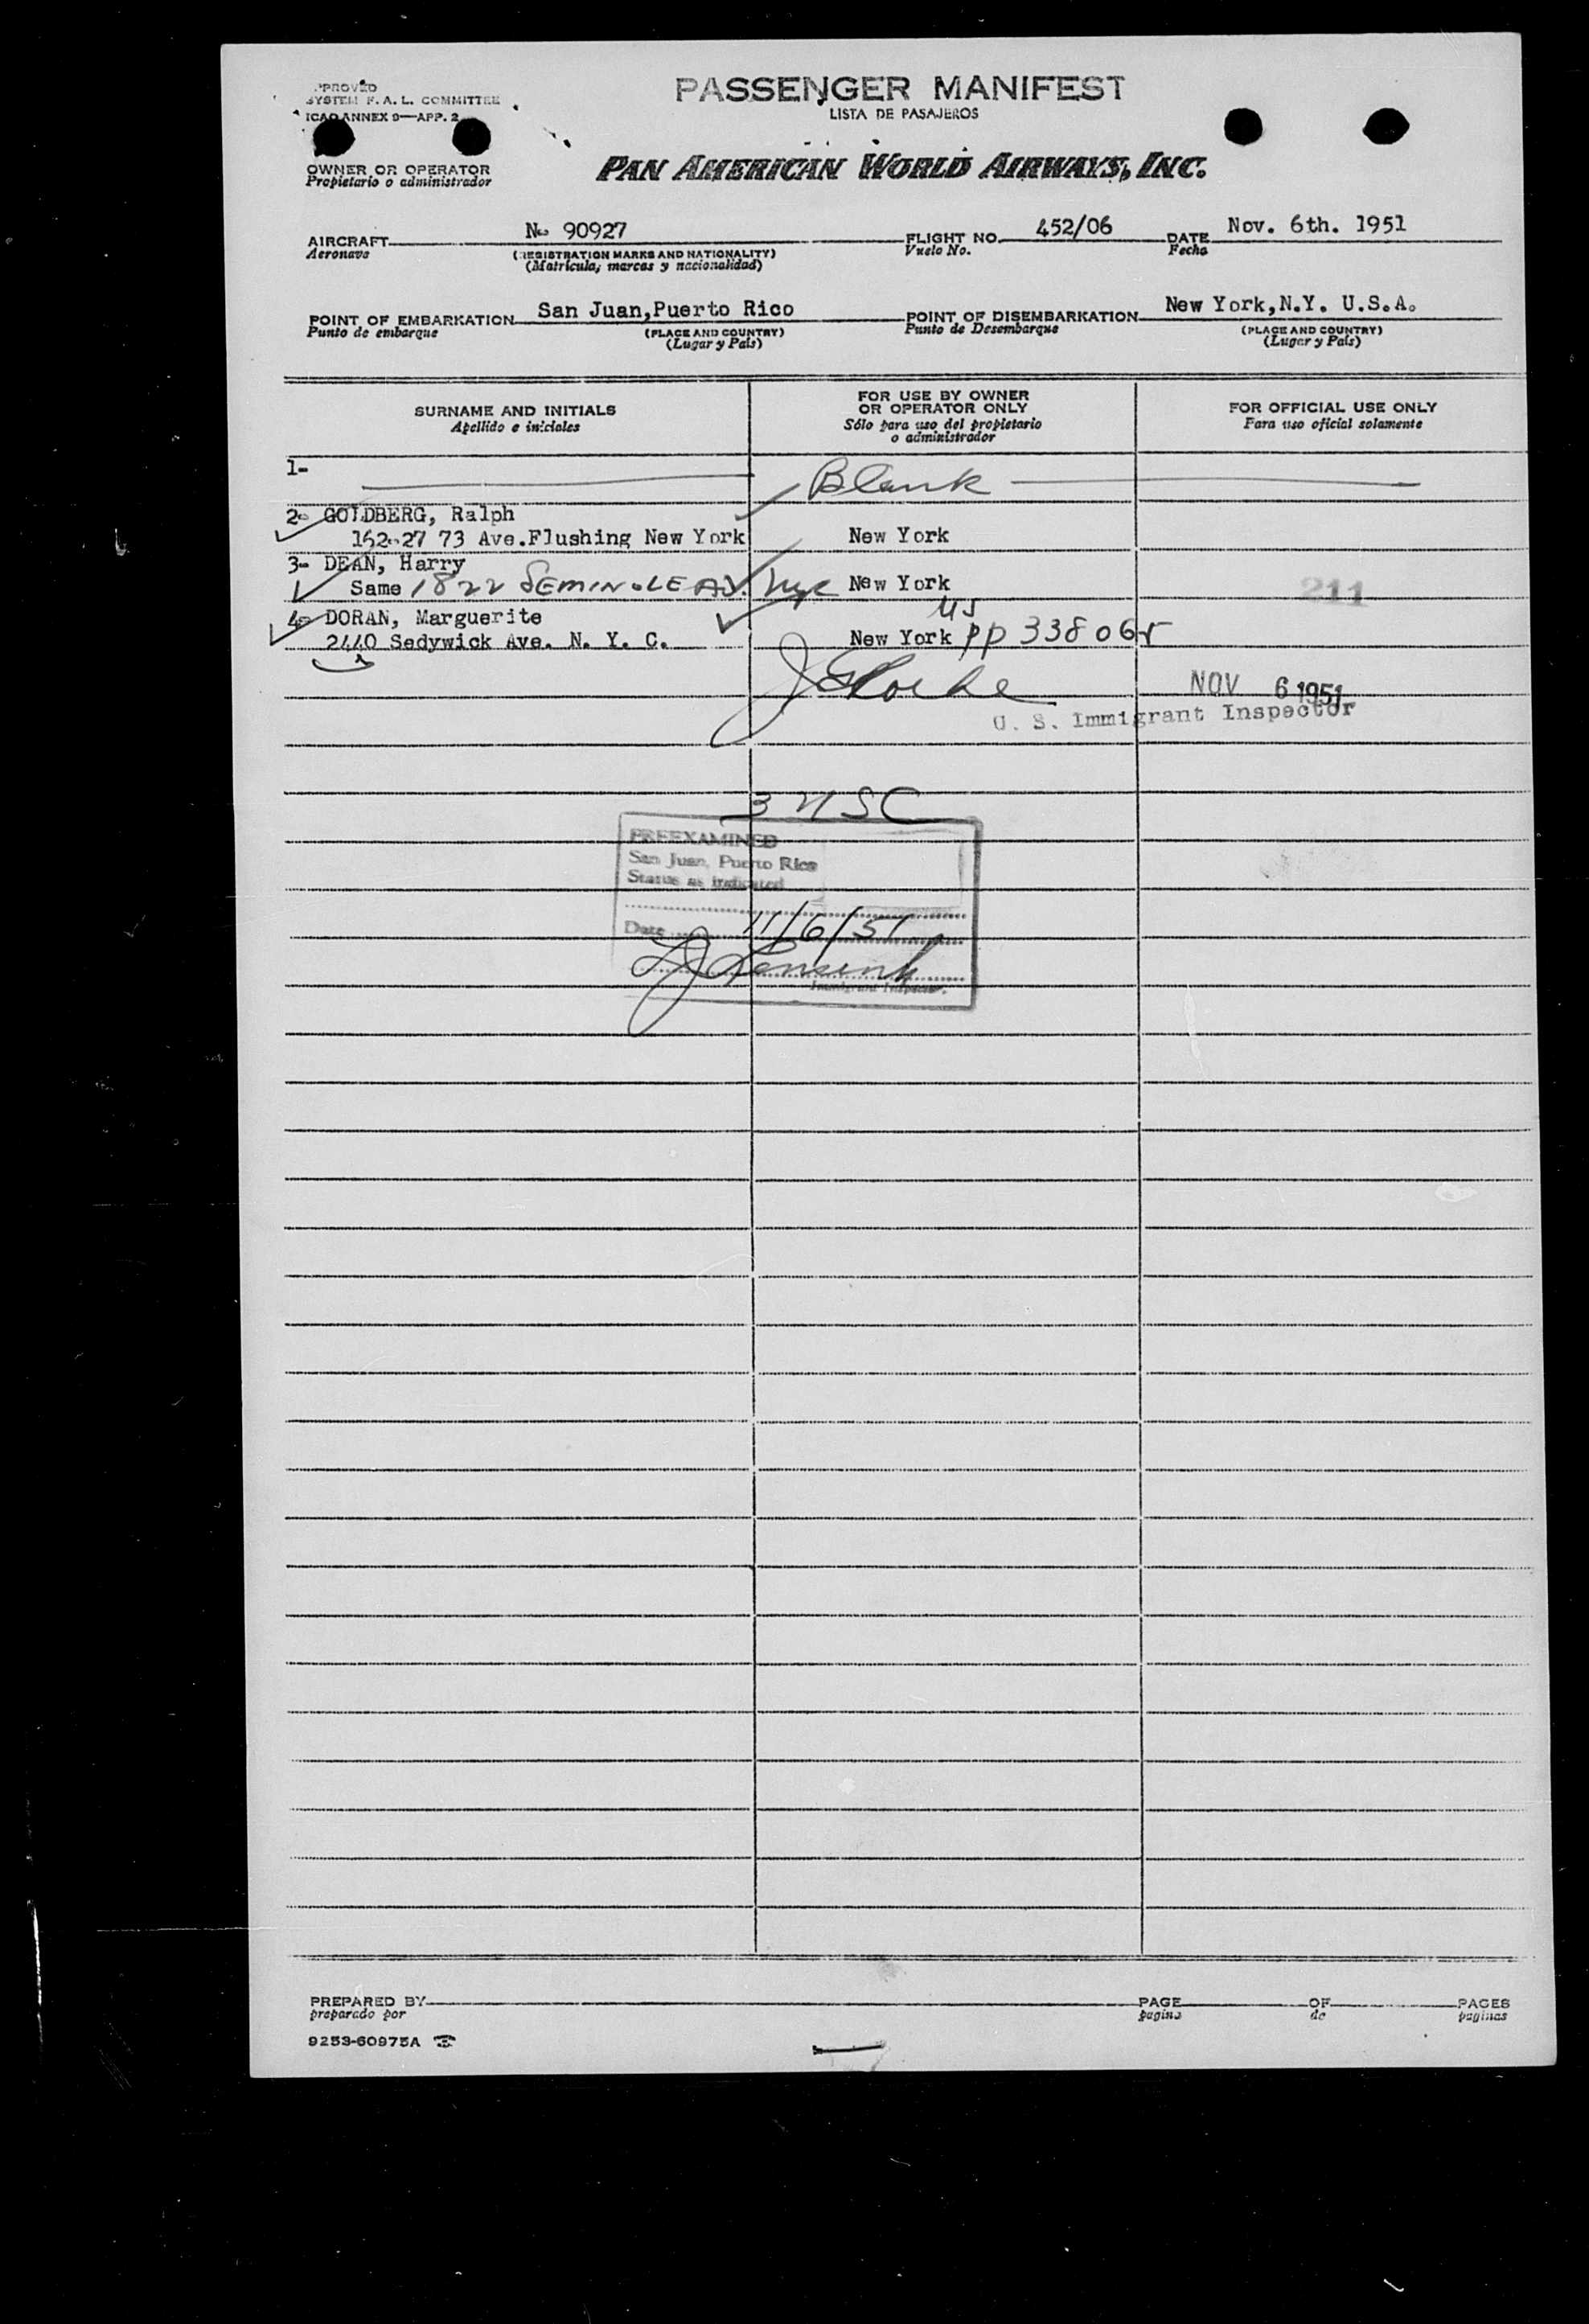 APPROVED
SYSTEM F. A. L. COMMITTEE
ICAO ANNEX 9—APP. 2
PASSENGER MANIFEST
LISTA DE PASAJEROS
OWNER OR OPERATOR
Propietario o administrador
PAN AMERICAN WORLD AIRWAYS, INC.
AIRCRAFT No 90927 FLIGHT NO. 452/06 DATE Nov. 6th. 1951
Aeronave (REGISTRATION MARKS AND NATIONALITY) Vuelo No. Fecha
(Matrícula, marcas y nacionalidad)
POINT OF EMBARKATION San Juan,Puerto Rico POINT OF DISEMBARKATION New York,N.Y. U.S.A.
Punto de embarque (PLACE AND COUNTRY) Punto de Desembarque (PLACE AND COUNTRY)
(Lugar y País) (Lugar y País)
SURNAME AND INITIALS
Apellido e iniciales
FOR USE BY OWNER
OR OPERATOR ONLY
Sólo para uso del propietario
o administrador
FOR OFFICIAL USE ONLY
Para uso oficial solamente
1- Blank
2- GOLDBERG, Ralph
162-27 73 Ave.Flushing New York New York
3- DEAN, Harry
Same 1822 SEMINOLE AV. nyc New York
211
4- DORAN, Marguerite
US
2440 Sedywick Ave. N. Y. C. New York pp 338065
NOV 6 1951
U. S. Immigrant Inspector
3 USC
PREEXAMINED
San Juan, Puerto Rico
Status as indicated
Date 11/6/51
Immigrant Inspector.
PREPARED BY PAGE OF PAGES
preparado por pagina de paginas
9253-60975A